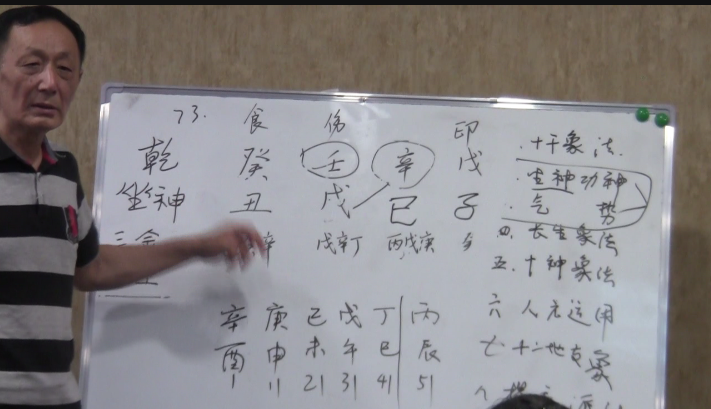 73. 食 伤 印
乾 癸 壬 辛 戊
坐神 丑 戌 巳 子
辛 戊辛丁 丙戊庚
辛 庚 己 戊 丁 丙
酉 申 未 午 巳 辰
1 11 21 31 41 51
.十干象法.
.坐神功神
.气势
四.长生象法
五.十神象法
六 人元运用
七 十二地支象